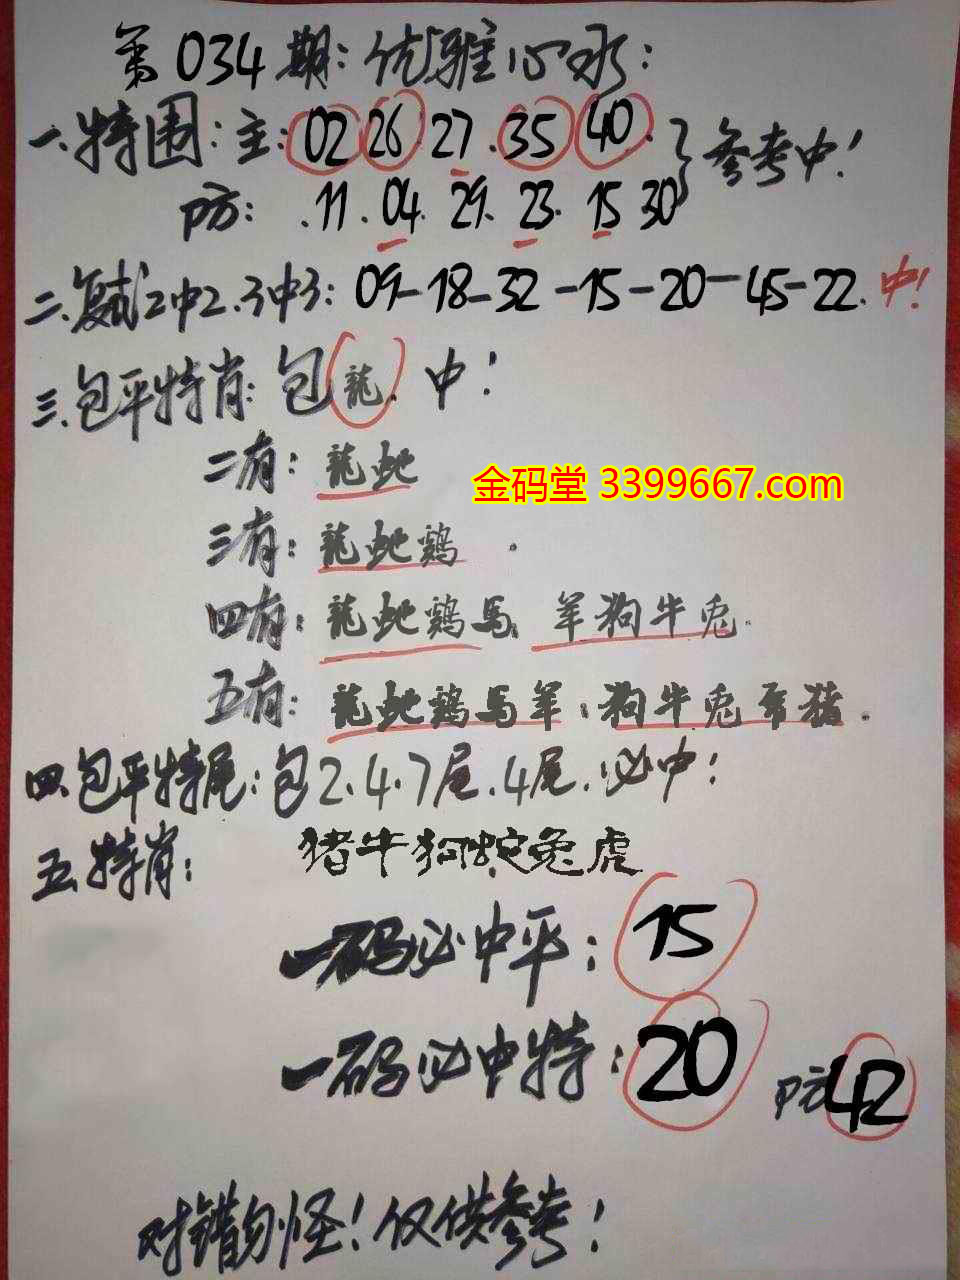 第034期:优雅心水:
一.特围:主:02 26.27.35 40.}参考中!
防:.11.04.29.23.15 30
二.复式2中2.3中3:09-18-32-15-20-45-22.中!
三.包平特肖:包龍.中!
二有:龍虵
金码堂 3399667.com
三有:龍虵鷄.
四有:龍虵鷄馬.羊狗牛兎.
五有:龍虵鷄馬羊:狗牛兎 猪.
四.包平特尾:包2.4.7尾.4尾.必中!
五.特肖:猪牛狗蛇兔虎
一码必中平:15
一码必中特:20 防42
对错勿怪!仅供参考!